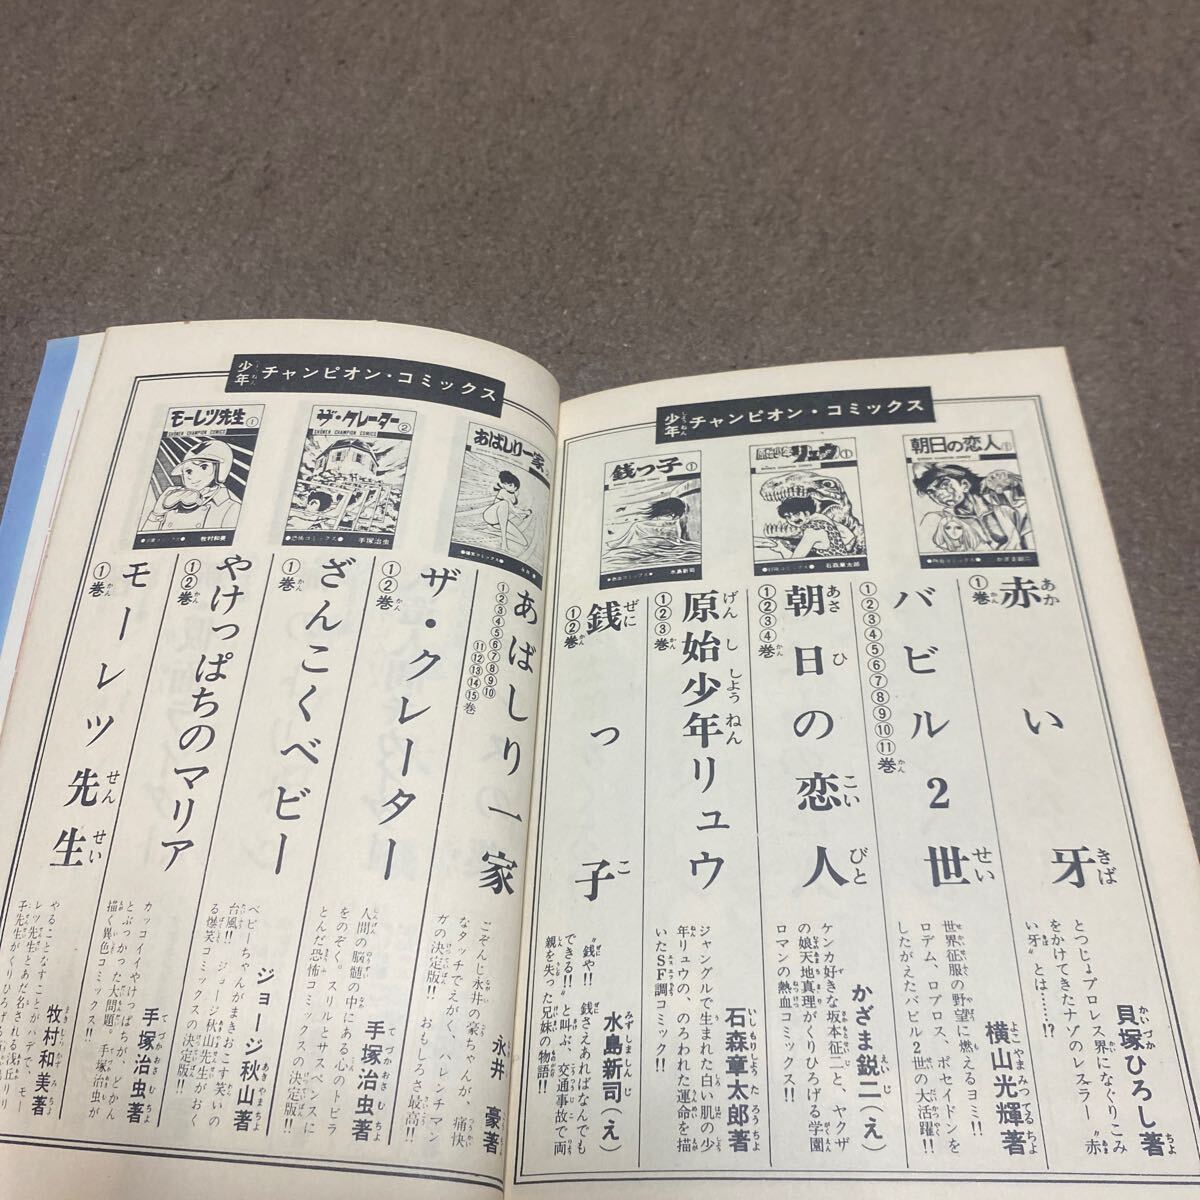 少年チャンピオン・コミックス
朝日の恋人①
リュウ①
石森章太郎
銭っ子①
水島新司
赤い牙
①巻
とつじょプロレス界になぐりこみ
をかけてきたナゾのレスラー〝赤
い牙〟とは……!?
貝塚ひろし著
バビル2世
①②③④⑤⑥⑦⑧⑨⑩⑪巻
世界征服の野望に燃えるヨミ!!
ロデム、ロプロス、ポセイドンを
したがえたバビル2世の大活躍!!
横山光輝著
朝日の恋人
①②③④巻
ケンカ好きな坂本征二と、ヤクザ
の娘天地真理がくりひろげる学園
ロマンの熱血コミックス!!
かざま鋭二(え)
原始少年リュウ
①②③巻
ジャングルで生まれた白い肌の少
年リュウの、のろわれた運命を描
いたSF調コミック!!
石森章太郎著
銭っ子
①②巻
〝銭や!! 銭さえあればなんでも
できる!!〟と叫ぶ、交通事故で両
親を失った兄妹の物語!!
水島新司(え)
少年チャンピオン・コミックス
あばしり一家
ザ・クレーター②
SHONEN CHAMPION COMICS
●恐怖コミックス●
手塚治虫
モーレツ先生①
SHONEN CHAMPION COMICS
牧村和美
あばしり一家
①②③④⑤⑥⑦⑧⑨⑩
⑪⑫⑬⑭⑮巻
ごぞんじ永井の豪ちゃんが、痛快
なタッチでえがく、ハレンチマン
ガの決定版!! おもしろさ最高!!
永井 豪著
ザ・クレーター
①②巻
人間の脳髄の中にある心のトビラ
をのぞく。スリルとサスペンスに
とんだ恐怖コミックスの決定版!!
手塚治虫著
ざんこくベビー
①巻
ベビーちゃんがまきおこす笑いの
台風!! ジョージ秋山先生がおく
る爆笑コミックスの決定版!!
ジョージ秋山著
やけっぱちのマリア
①②巻
カッコイイやけっぱちが、どかん
とぶつかった大問題。手塚治虫が
描く異色コミックス!!
手塚治虫著
モーレツ先生
①巻
やることなすことがハデで、モー
レツ先生とあだ名される浅丘
子先生がくりひろげる
牧村和美著